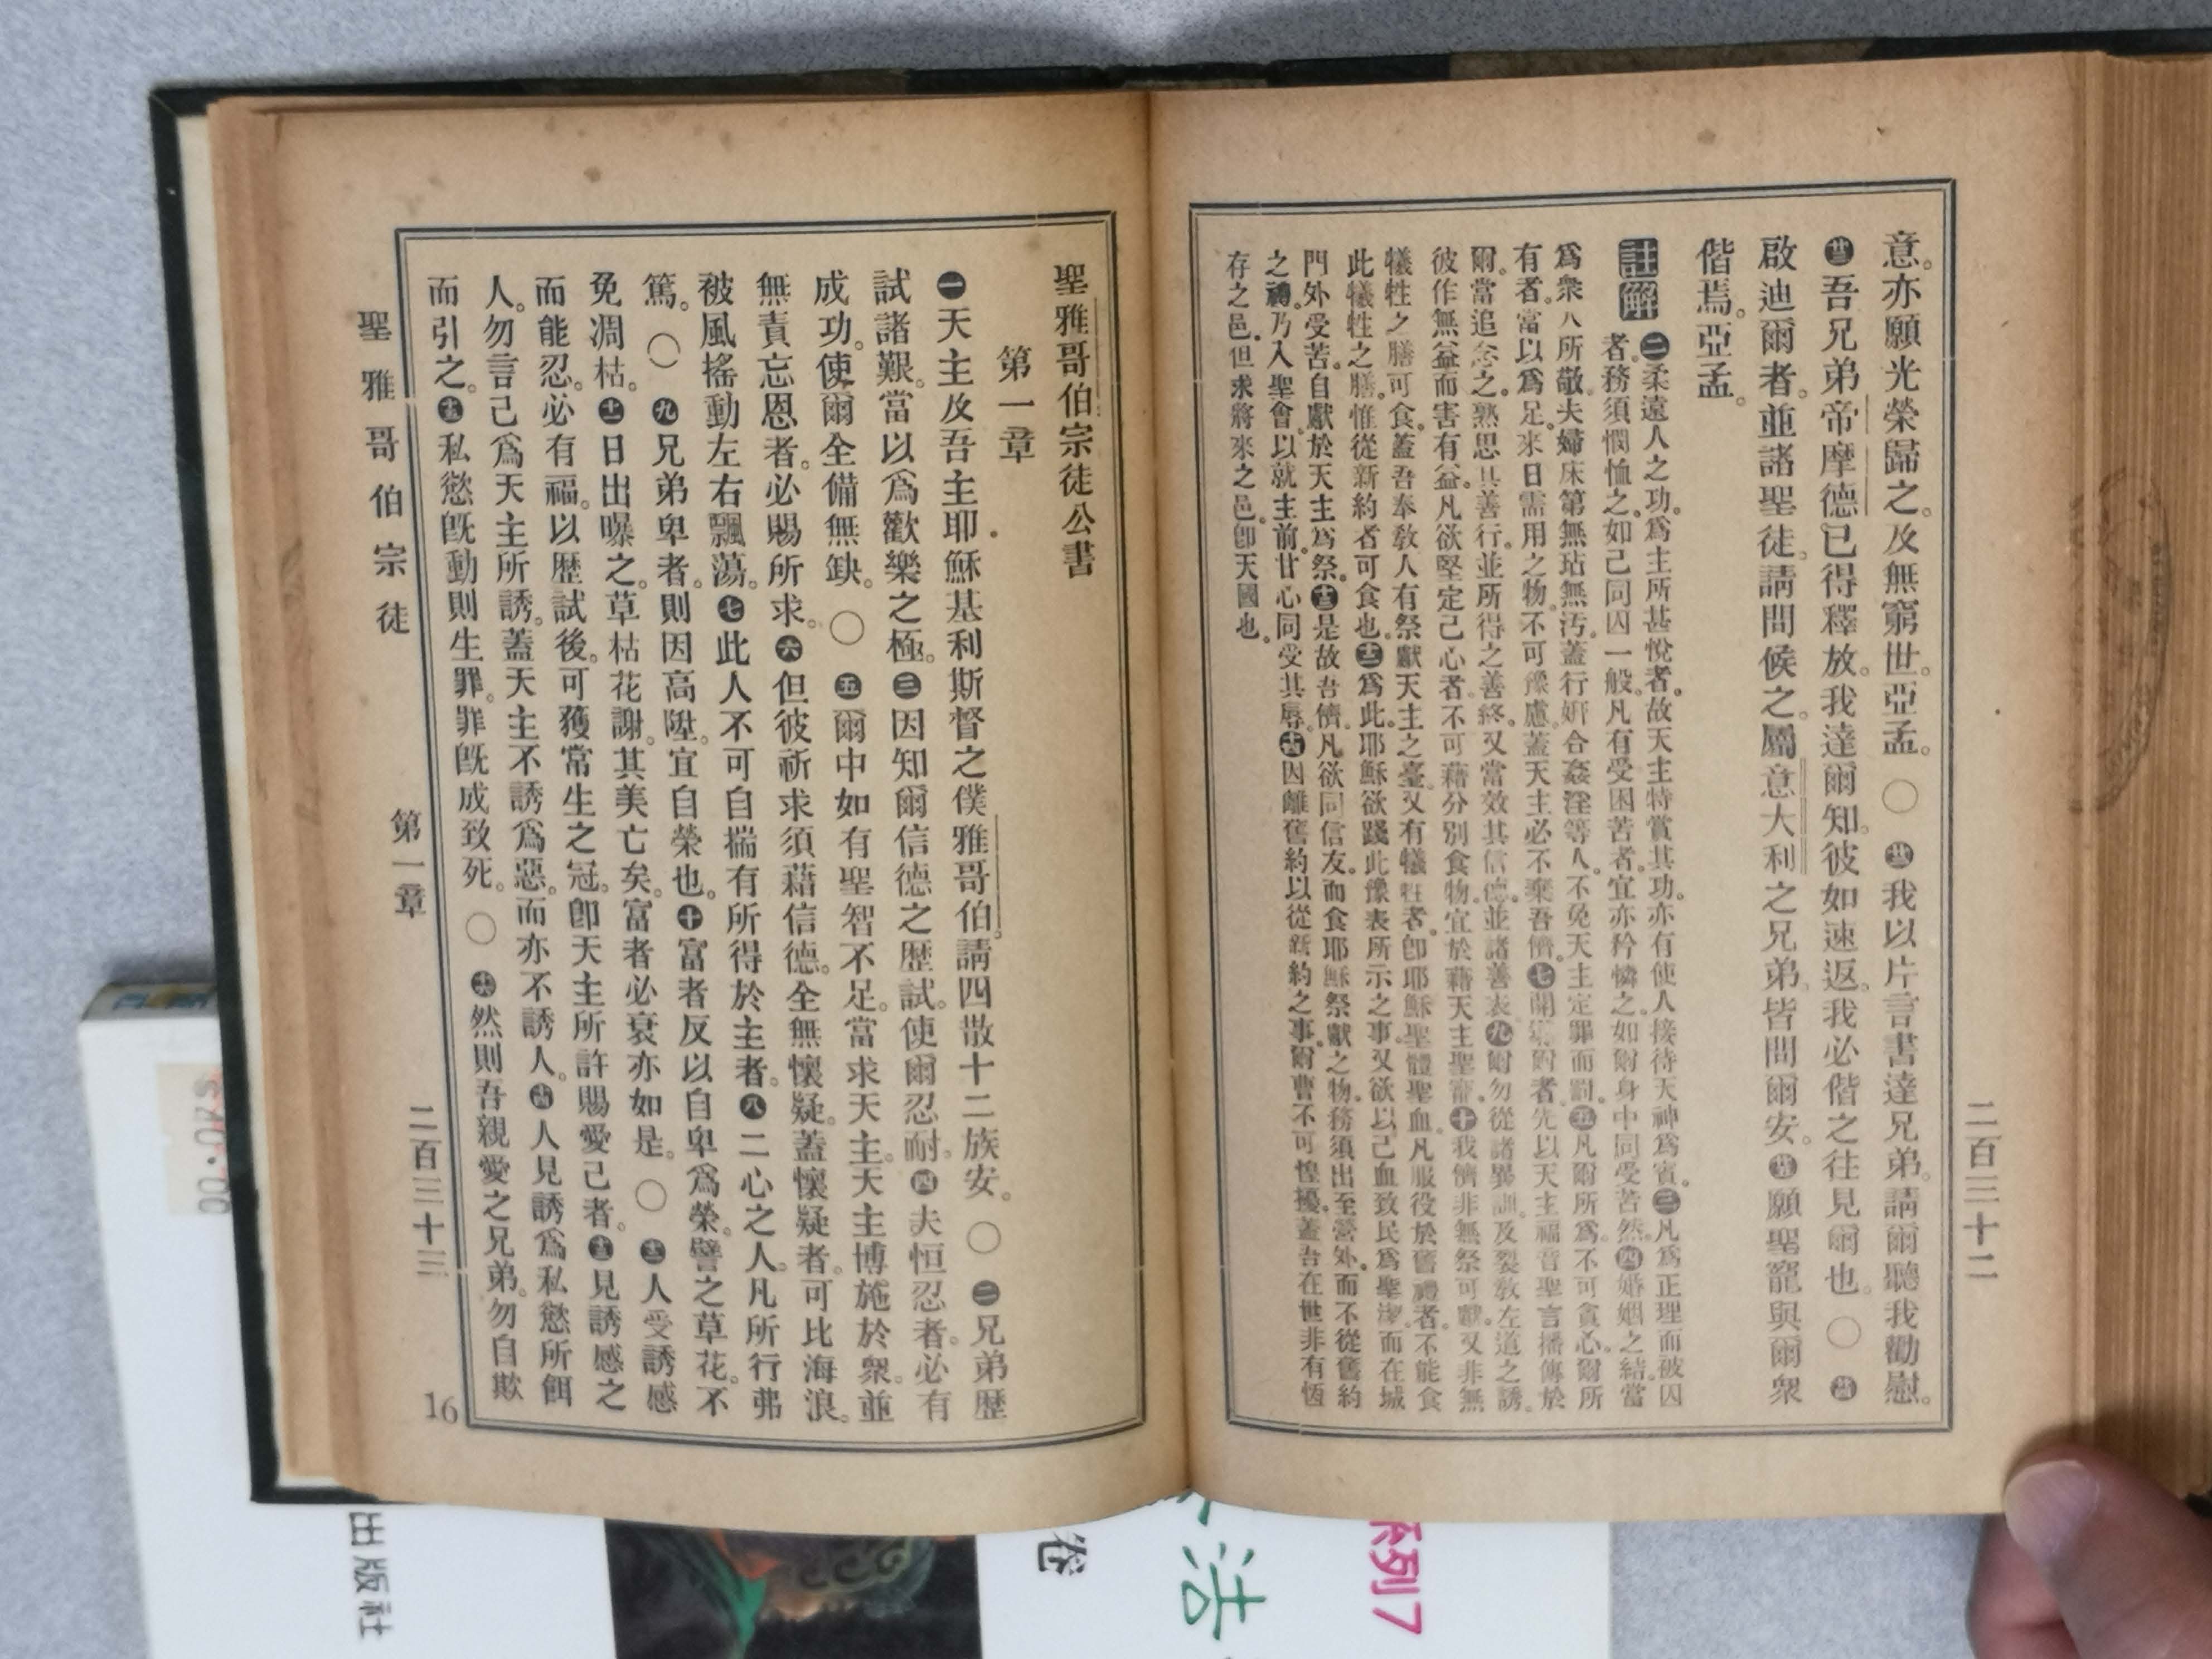 二百三十二
意。亦願光榮歸之。及無窮世。亞孟。○㊁我以片言書達兄弟。請爾聽我勸慰。
吾兄弟帝摩德。已得釋放。我達爾知。彼如速返。我必偕之往見爾也。○
啟迪爾者。並諸聖徒。請問候之。屬意大利之兄弟。皆問爾安。願聖寵與爾衆
偕焉。亞孟。
註解 ㊁柔遠人之功。爲主所甚悅者。故天主特賞其功。亦有使人接待天神爲賓。㊂凡爲正理而被囚
者。務須憫恤之。如己同囚一般。凡有受困苦者。宜亦矜憐之。如爾身中同受苦然。㊃婚姻之結。當
爲衆人所敬。夫婦床第無玷無汚。蓋行奸合姦淫等人。不免天主定罪而罰。㊄凡爾所爲。不可貪心。爾所
有者。當以爲足。來日需用之物。不可豫慮。蓋天主必不棄吾儕。㊆開導爾者。先以天主福音聖言播傳於
爾。當追念之。熟思其善行。並所得之善終。又當效其信德。並諸善表。㊈爾勿從諸異訓。及裂敎左道之誘。
彼作無益而害有益。凡欲堅定己心者。不可藉分別食物。宜於藉天主聖寵。㊉我儕非無祭可獻。又非無
犧牲之膳可食。蓋吾奉敎人有祭獻天主之臺。又有犧牲者。卽耶穌聖體聖血。凡服役於舊禮者。不能食
此犧牲之膳。惟從新約者可食也。爲此。耶穌欲踐此豫表所示之事。又欲以己血致民爲聖潔。而在城
門外受苦。自獻於天主爲祭。是故吾儕。凡欲同信友。而食耶穌祭獻之物。務須出至營外。而不從舊約
之禮。乃入聖會。以就主前。甘心同受其辱。因離舊約以從新約之事。爾曹不可惶擾。蓋吾在世非有恆
存之邑。但求將來之邑。卽天國也。
聖雅哥伯宗徒公書
第一章
㊀天主及吾主耶穌基利斯督之僕雅哥伯。請四散十二族安。○㊁兄弟歷
試諸艱。當以爲歡樂之極。㊂因知爾信德之歷試。使爾忍耐。㊃夫恒忍者。必有
成功。使爾全備無缺。○㊄爾中如有聖智不足。當求天主。天主博施於衆。並
無責忘恩者。必賜所求。㊅但彼祈求須藉信德。全無懷疑。蓋懷疑者。可比海浪。
被風搖動左右飄蕩。㊆此人不可自揣有所得於主者。㊇二心之人。凡所行弗
篤。○㊈兄弟卑者。則因高陞。宜自榮也。㊉富者反以自卑爲榮。譬之草花。不
免凋枯。日出曝之。草枯花謝。其美亡矣。富者必衰亦如是。○人受誘感
而能忍。必有福。以歷試後。可獲常生之冠。卽天主所許賜愛己者。見誘感之
人。勿言己爲天主所誘。蓋天主不誘爲惡。而亦不誘人。人見誘爲私慾所餌
而引之。私慾旣動則生罪。罪旣成致死。○然則吾親愛之兄弟。勿自欺
聖雅哥伯宗徒 第一章 二百三十三
16
出版社
卷
活
系列7